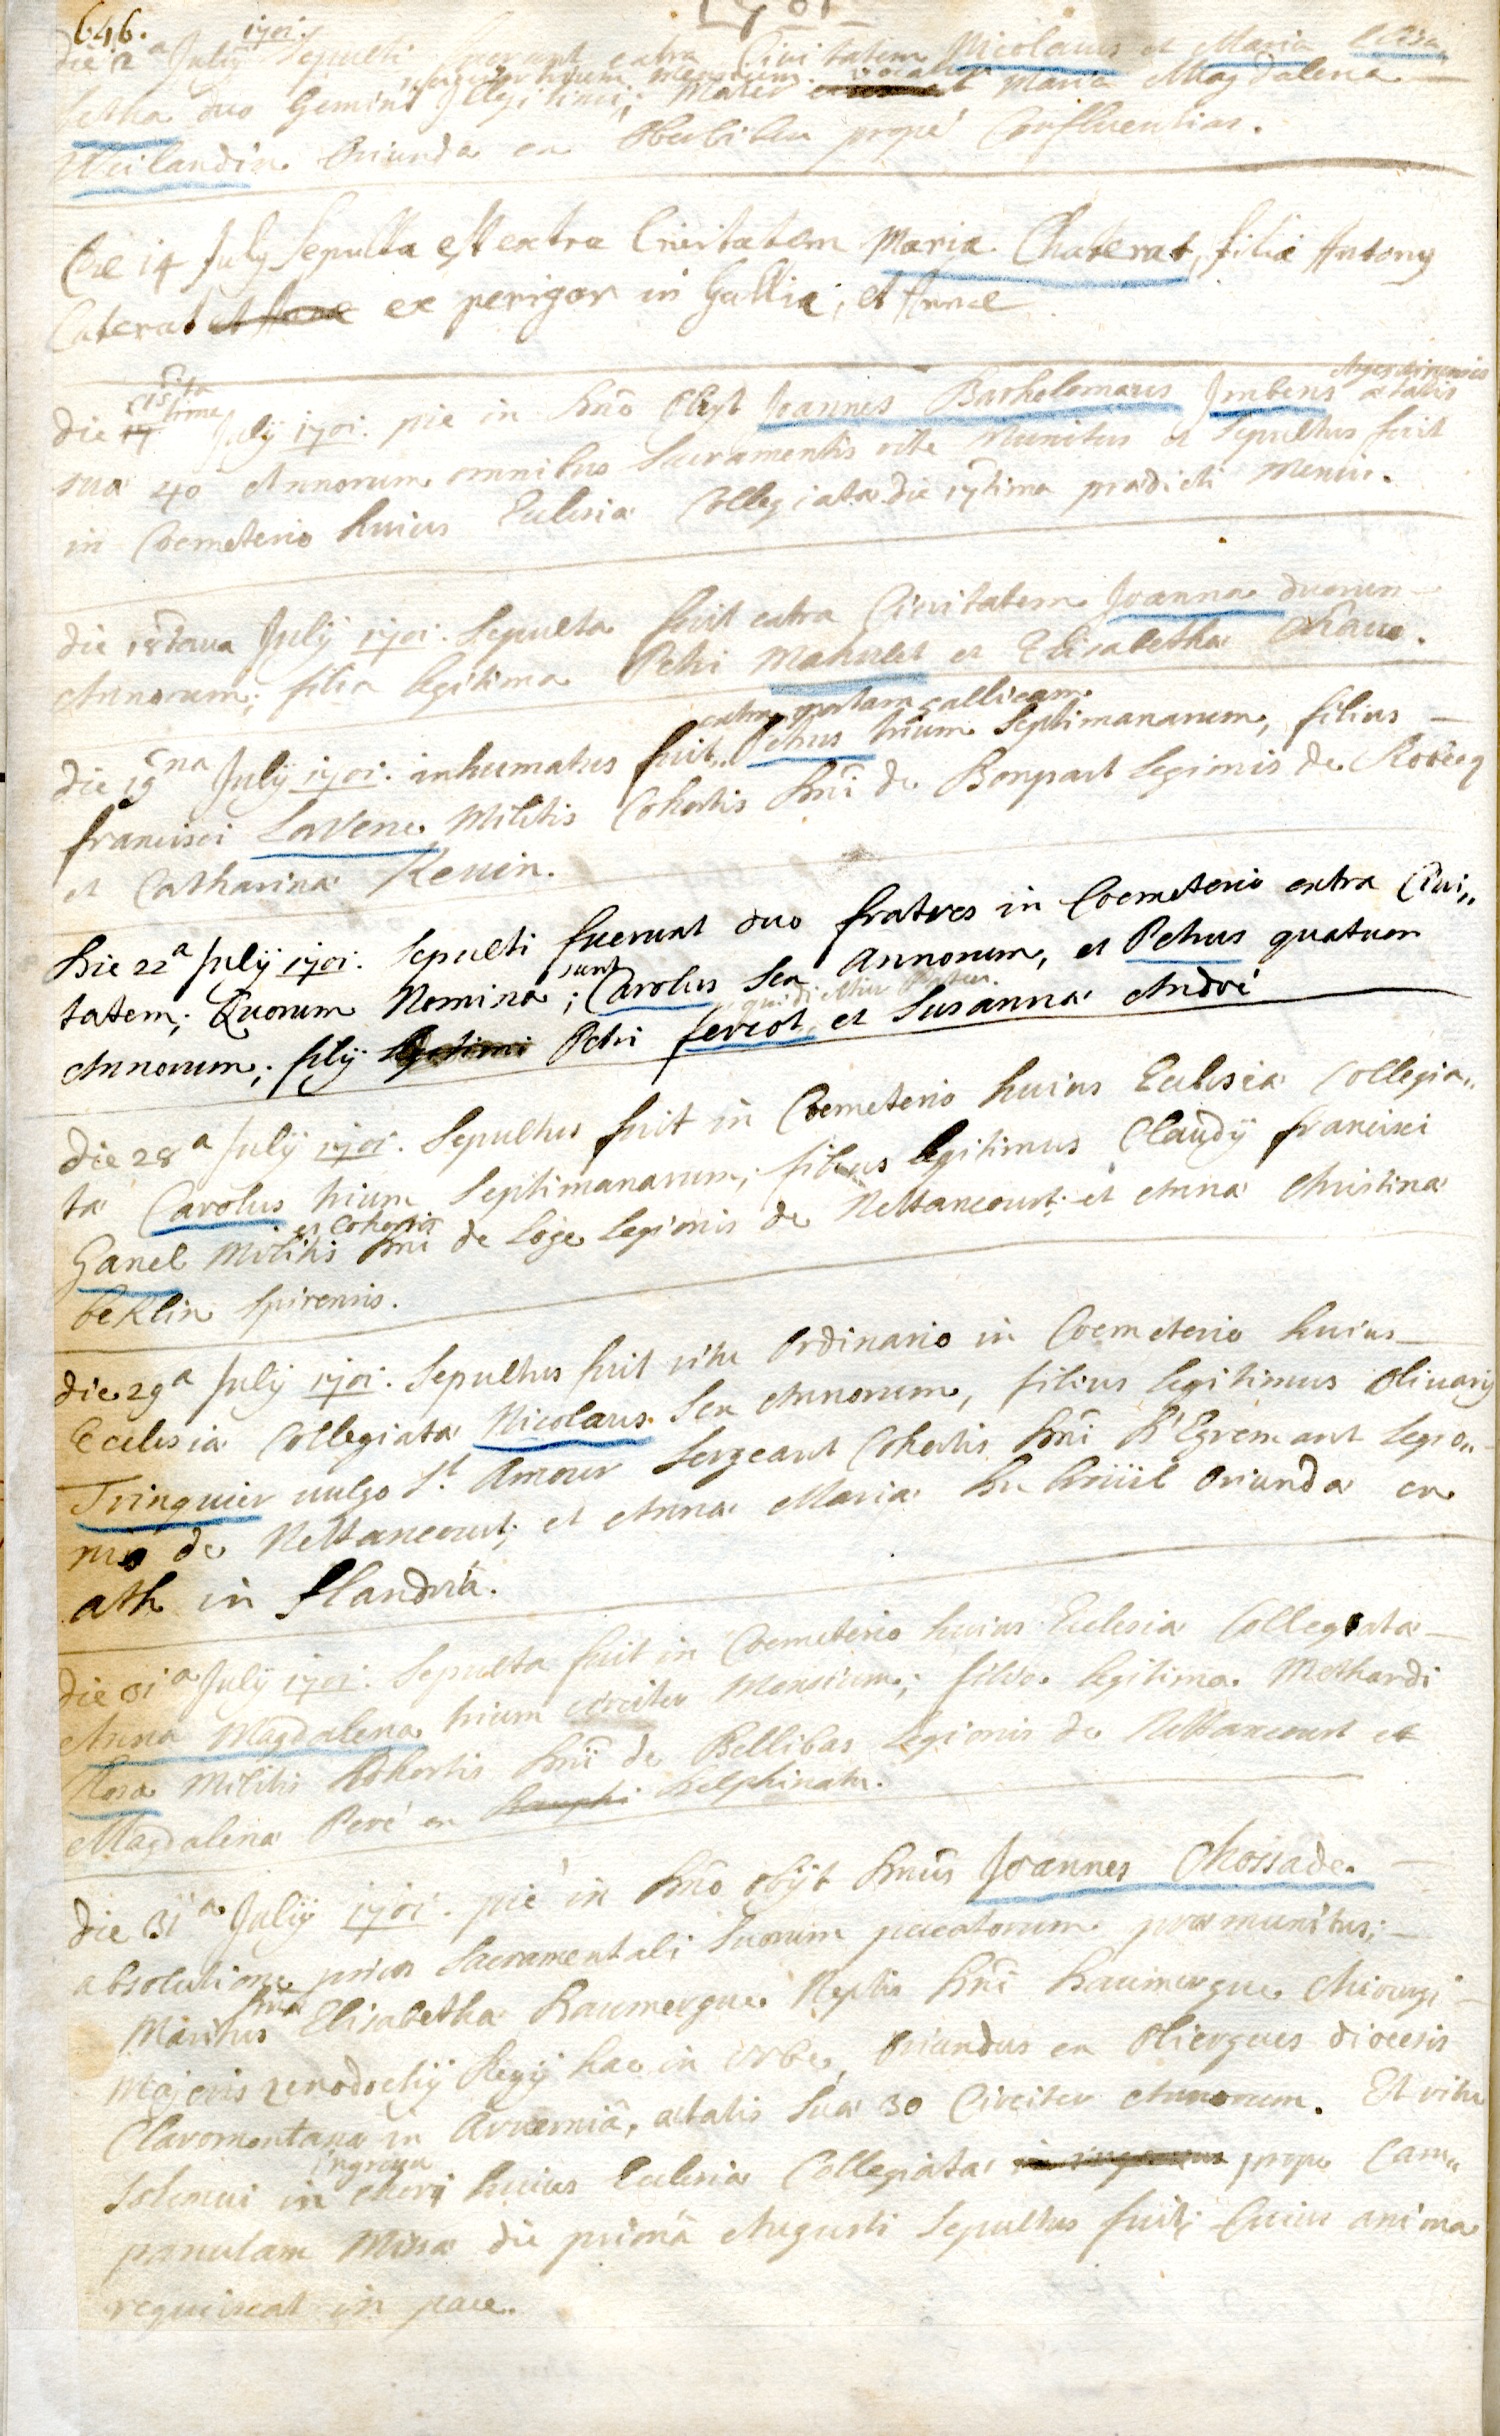 646.
1701
die 2ᵃ Julÿ 1701. Sepulti fuerunt extra Civitatem Nicolaus et Maria Elisa
betha duo Gemini Illegitimi; mensium. Mater vocatur Maria Magdalena
Weilandin Oriunda ex prope Confluentias.
Die 14 July Sepulta est extra Civitatem Maria Chaterat, filia Antony
Caterat et Anne ex perigor in Gallia, et Annae
15ta
die 17 tima Julÿ 1701. pie in Dno Obyt Joannes Bartholomaeus Imbens ætatis
suæ 40 Annorum omnibus Sacramentis rite Munitus et Sepultus fuit
in Coemeterio huius Ecclesiæ Collegiatæ die 17tima prædicti Mensis.
die 18tava Julÿ 1701. Sepulta fuit extra Civitatem Joanna duorum
Annorum; filia legitima Petri Mahulet et Elisabethæ
extra portam gallicam
die 19na Julÿ 1701. inhumatus fuit Petrus trium Septimanarum, filius
francisci LaVene Militis Cohortis Dni de Bonpart Legionis de Robecq
et Catharinæ Kevin.
Die 22ᵃ Julÿ 1701. Sepulti fuerunt duo fratres in Coemeterio extra Civi„
tatem; Quorum Nomina sunt; Carolus Sex Annorum, et Petrus quatuor
Annorum; filÿ legitimi Petri fercot, et Susannæ André
die 28ᵃ Julÿ 1701. Sepultus fuit in Coemeterio huius Ecclesiæ Collegia„
tæ Carolus trium Septimanarum; filius legitimus Claudÿ francisci
Ganel Militis ex Cohortis Dni de Loge Legionis de Nettancourt; et Annæ Christinæ
beklin spirensis.
die 29ᵃ Julÿ 1701. Sepultus fuit ritu Ordinario in Coemeterio huius
Ecclesiæ Collegiatæ Nicolaus Sex Annorum, filius legitimus Olivarÿ
Trinquier vulgo St. Amour Sergeant Cohortis Dni D'Egremant Legio„
nis de Nettancourt; et Annæ Mariæ Oriunda ex
ath in flandriâ.
die 31ᵃ Julÿ 1701. Sepulta fuit in Coemeterio huius Ecclesiæ Collegiatæ
Anna Magdalena trium circiter Mensium; filia legitima Methardi
Rosa Militis Cohortis Dni de Bellibas Legionis de Nettancourt et
Magdalenæ Peré ex Dauphi Delphinatu.
die 31ᵃ Julÿ 1701. piè in Dno obÿt Dnus Joannes Chossade.
absolutione prius Sacramentali Suorum peccatorum præmunitus;
Maritus Dnæ Elisabethæ Daumergue Neptis Dni Daumergue Chirurgi
Majoris xenodochÿ Regÿ hac in Urbe, Oriundus ex Oliergues diocesis
Claromontanæ in Arverniâ, ætatis Suæ 30 Circiter Annorum. Et ritu
Solemni in ingressu Chori huius Ecclesiæ Collegiatæ prope Cam„
panulam Missæ die primâ Augusti Sepultus fuit; Cuius anima
requiescat in pace.